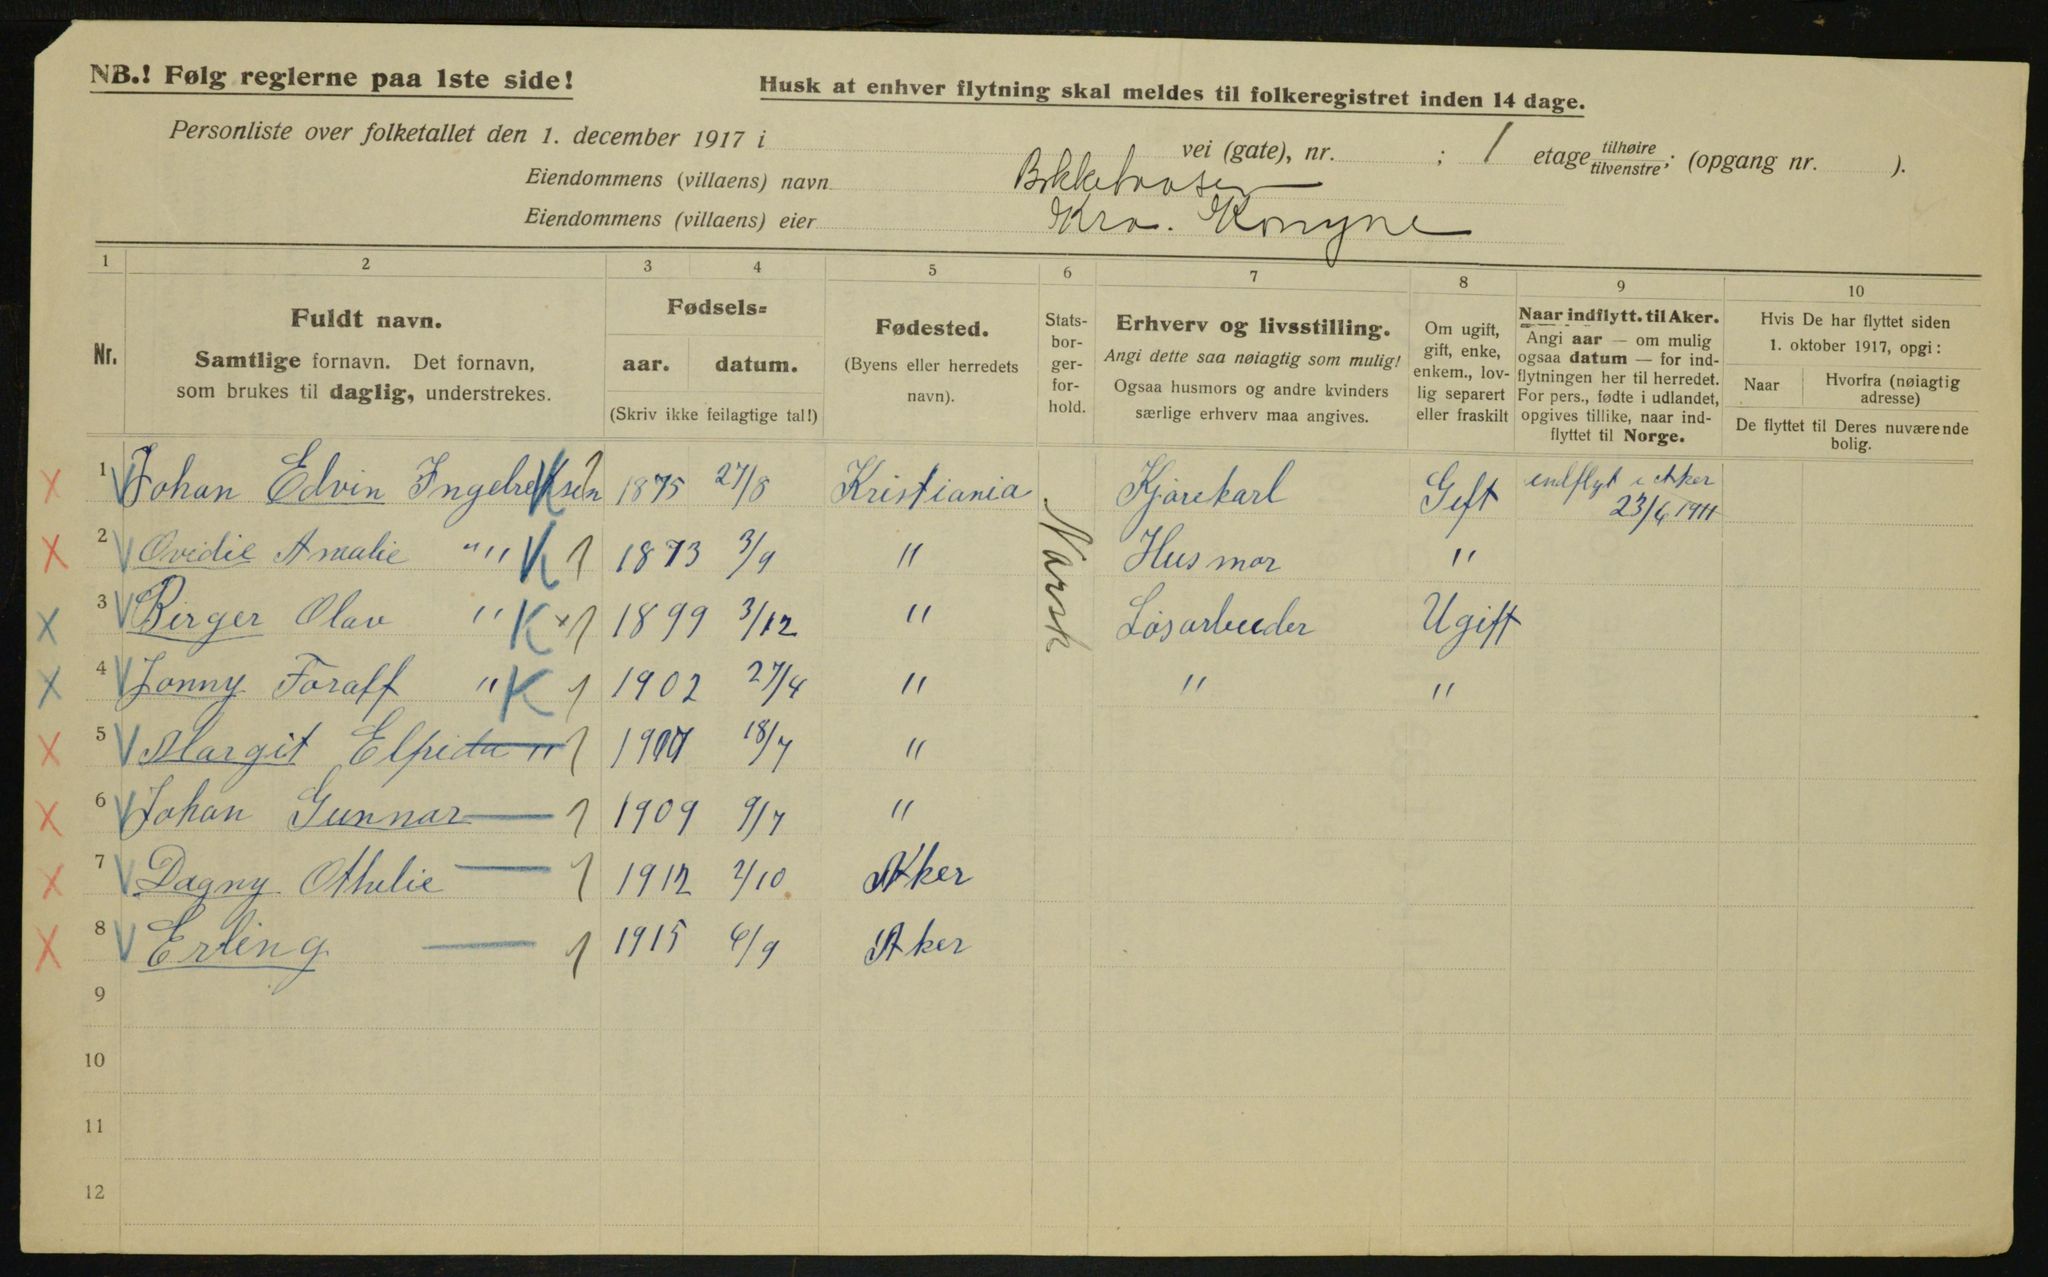 NB.! Følg reglerne paa 1ste side!
Husk at enhver flytning skal meldes til folkeregistret inden 14 dage.
Personliste over folketallet den 1. december 1917 i vei (gate), nr. ; 1 etage tilhøire/tilvenstre; (opgang nr. ).
Eiendommens (villaens) navn
Eiendommens (villaens) eier Kra.
1 2 3 4 5 6 7 8 9 10
Nr.
Fuldt navn.
Samtlige fornavn. Det fornavn,
som brukes til daglig, understrekes.
Fødsels=
aar. datum.
(Skriv ikke feilagtige tal!)
Fødested.
(Byens eller herredets
navn).
Stats-
bor-
ger-
for-
hold.
Erhverv og livsstilling.
Angi dette saa nøiagtig som mulig!
Ogsaa husmors og andre kvinders
særlige erhverv maa angives.
Om ugift,
gift, enke,
enkem., lov-
lig separert
eller fraskilt
Naar indflytt. til Aker.
Angi aar — om mulig
ogsaa datum — for ind-
flytningen her til herredet.
For pers., fødte i udlandet,
opgives tillike, naar ind-
flyttet til Norge.
Hvis De har flyttet siden
1. oktober 1917, opgi:
Naar Hvorfra (nøiagtig
adresse)
De flyttet til Deres nuværende
bolig.
X 1 V Johan Edvin Ingebretsen K 1 1875 27/8 Kristiania Norsk Kjørekarl Gift indflyt i Aker
23/4 1911
X 2 V Ovidie Amalie " " K 1 1873 3/9 " Husmor "
X 3 V Birger Olav " K × 1 1899 3/12 " Løsarbeider Ugift
X 4 V Jonny Toralf " K 1 1902 27/4 " " "
X 5 V Margit Elfrida " 1 1907 18/7 "
X 6 V Johan Gunnar — 1 1909 9/7 "
X 7 V Dagny Othelie — 1 1912 2/10 Aker
X 8 V Erling — 1 1915 6/9 Aker
9
10
11
12